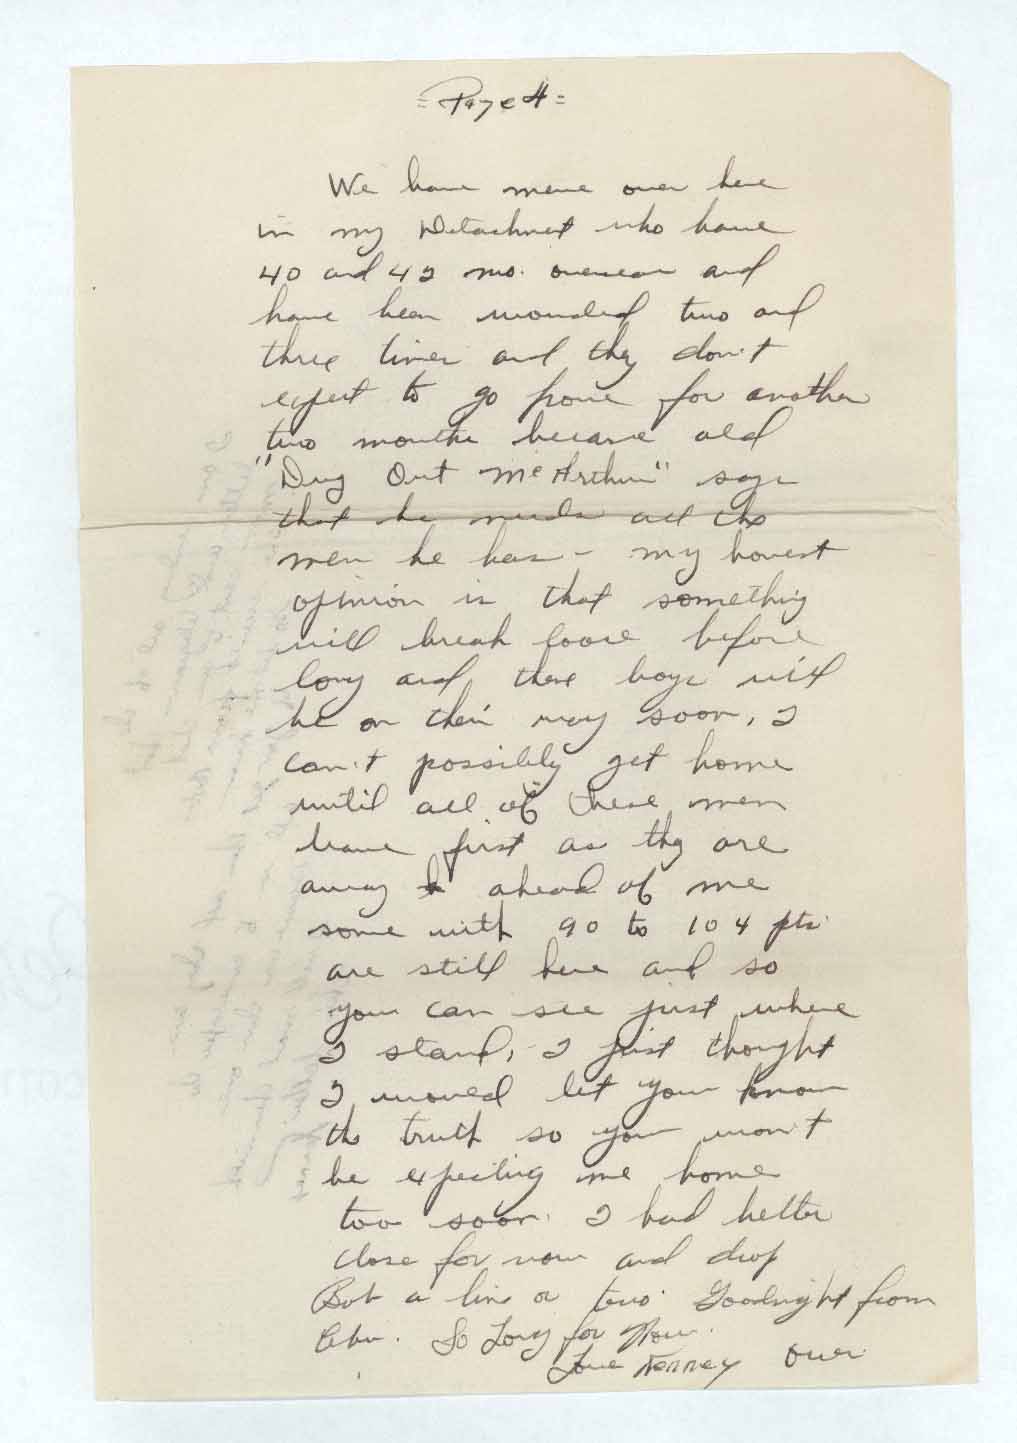 = Page 4 =
We have mene over here
in my Detachmet who have
40 and 42 mo. oversear and
have been wounded two and
three times and they don't
expect to go home for another
two months because old
"Dug Out McArthur" says
that he needs all the
men he has - my honest
opinion is that something
will break loose before
long and these boys will
be on their way soon. I
can't possibly get home
until all of these men
leave first as they are
away ahead of me
some with 90 to 104 pts.
are still here and so
you can see just where
I stand. - I just thought
I would let you know
the truth so you won't
be expecting me home
too soon. I had better
close for now and drop
Bob a line or two. Goodnight from
Cebu. So Long for Now.
Love Kenney over